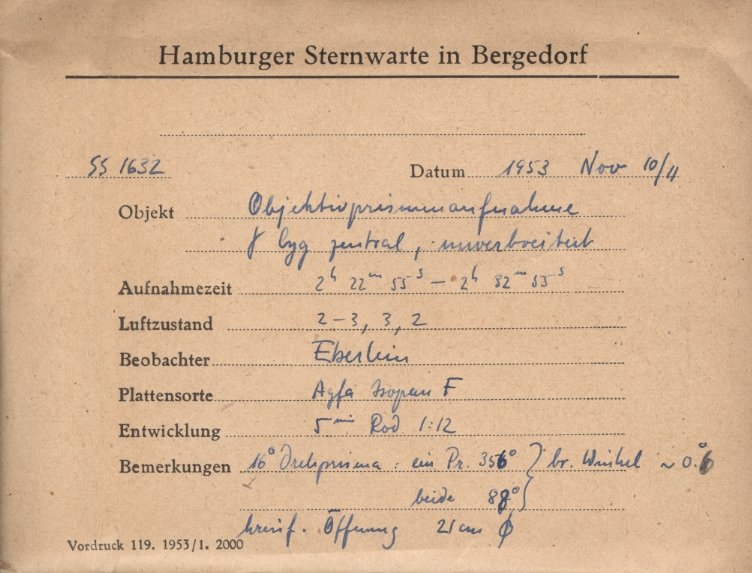 Hamburger Sternwarte in Bergedorf
SS 1632 Datum 1953 Nov 10/11
Objekt Objektivprismenaufnahme
γ Cyg zentral, unverbreitert
Aufnahmezeit 2h 22m 55s – 2h 32m 55s
Luftzustand 2–3, 3, 2
Beobachter Eberlein
Plattensorte Agfa Isopan F
Entwicklung 5min Rod 1:12
Bemerkungen 16° Drehprisma: ein Pr. 356° } br. Winkel ~ 0.°6
beide 88° }
kreisf. Öffnung 21cm ϕ
Vordruck 119. 1953/1. 2000